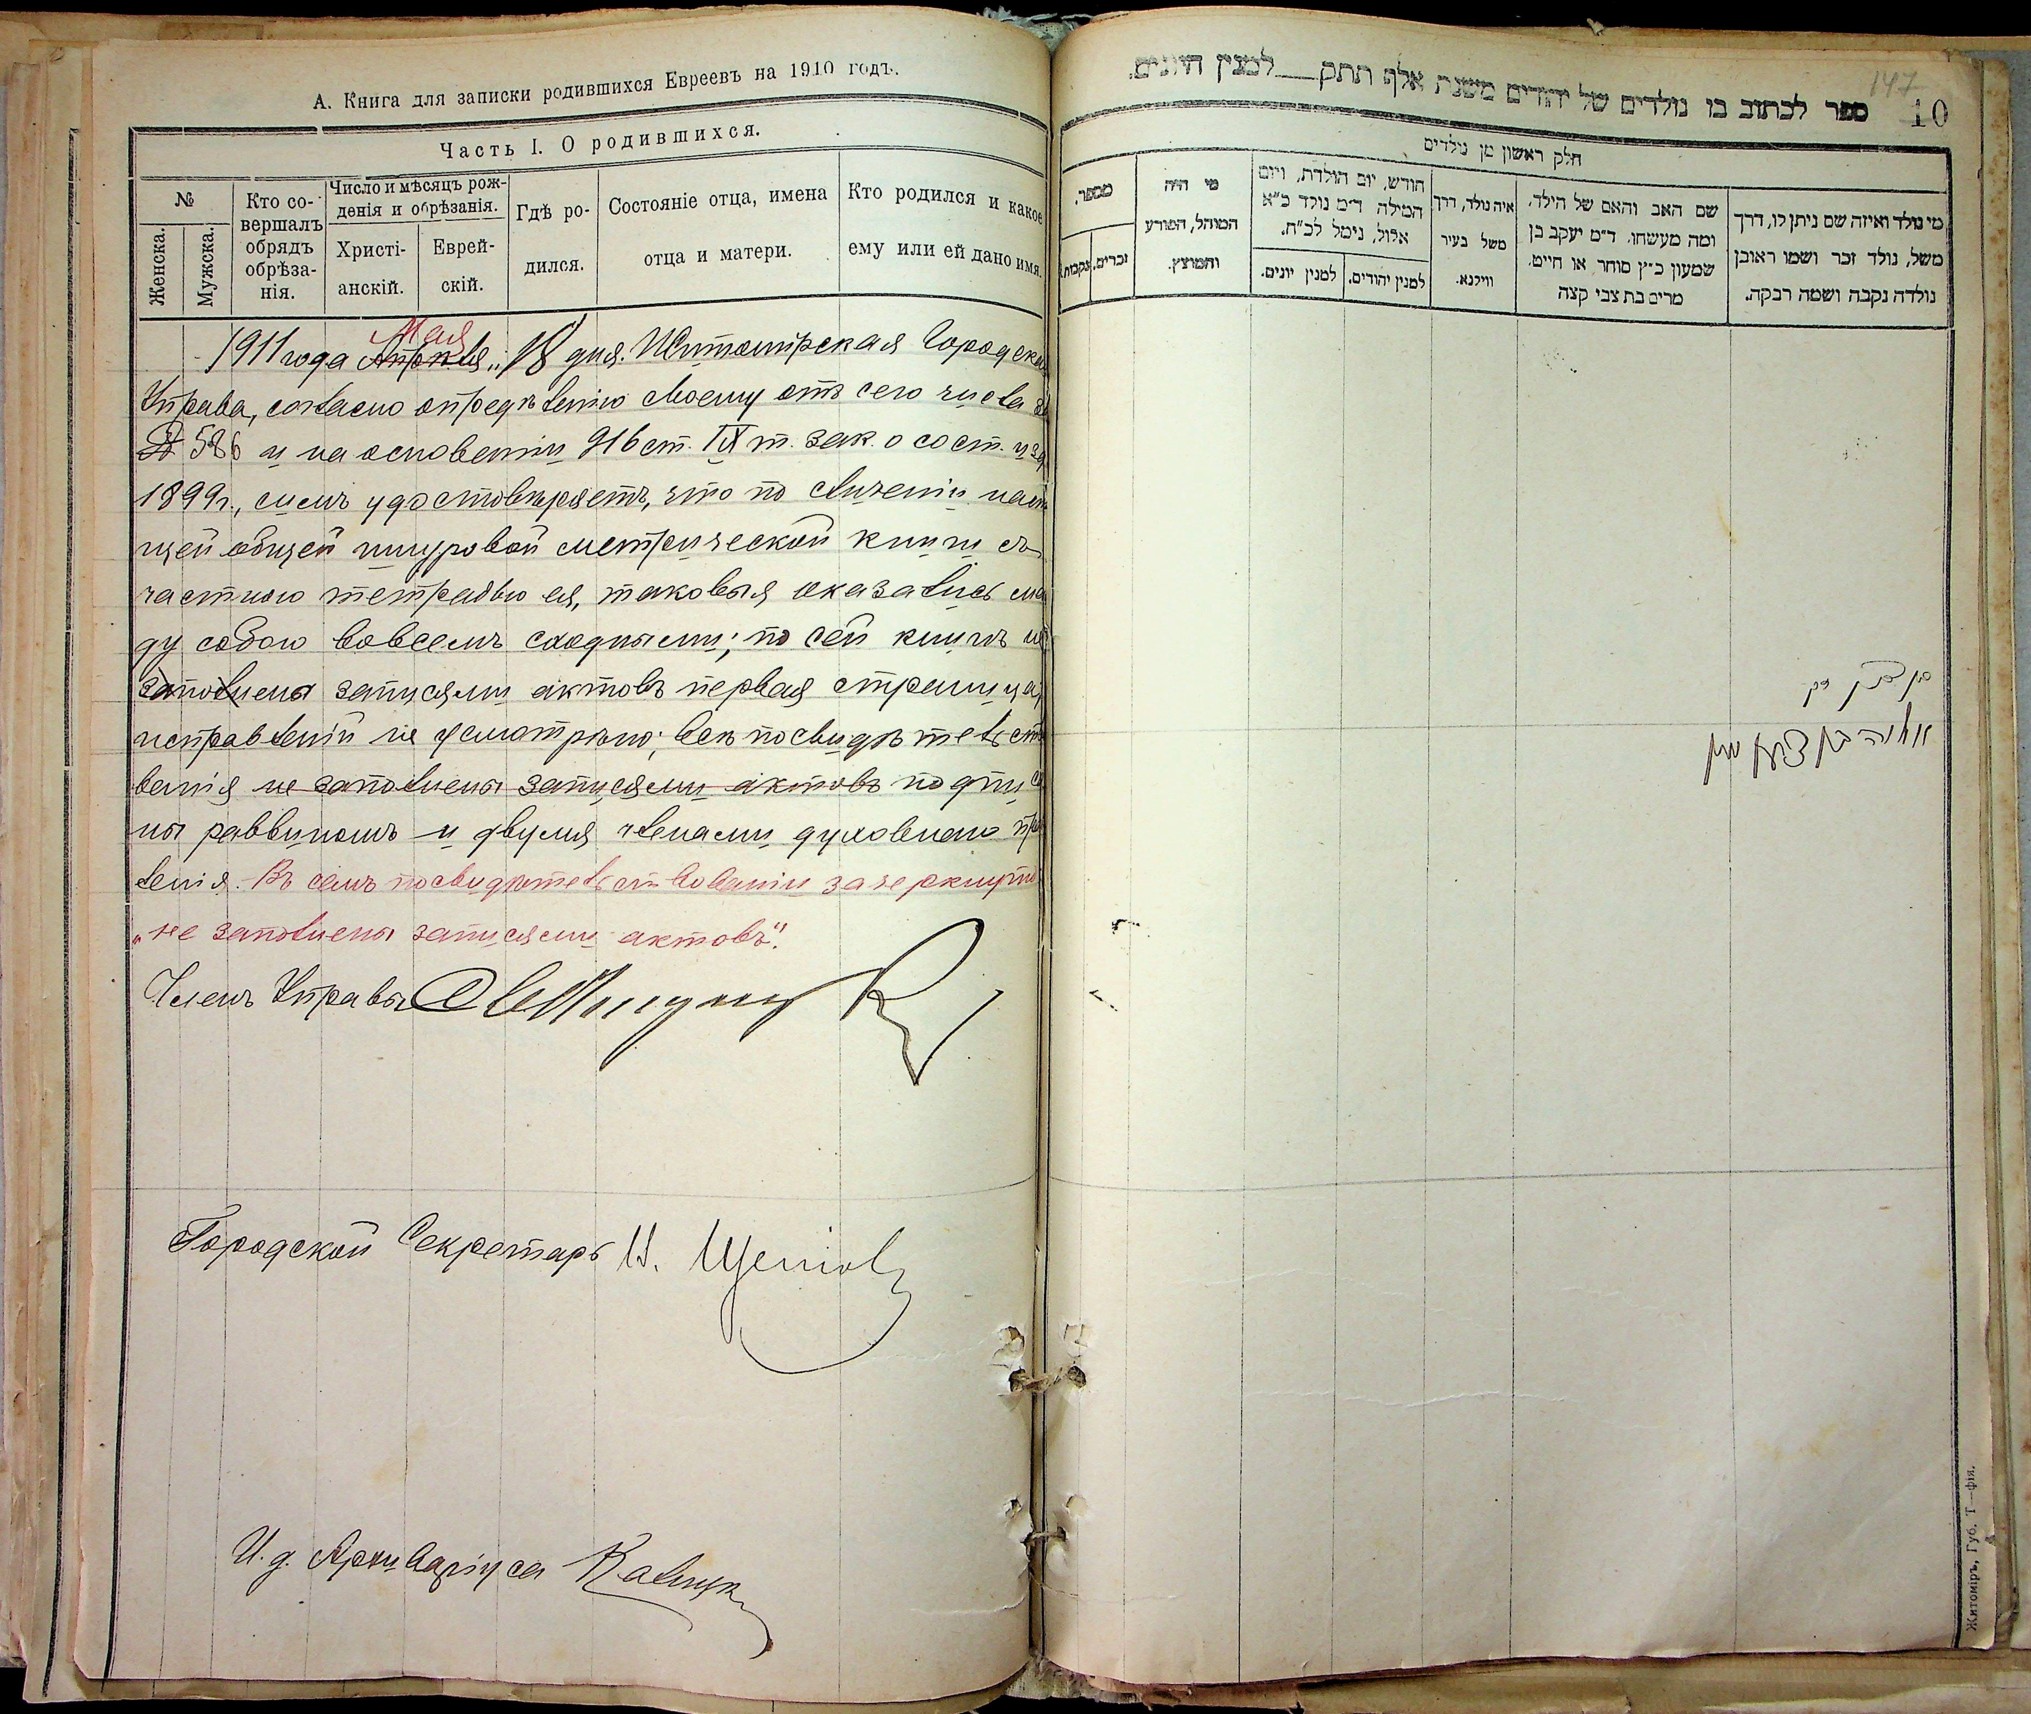 А. Книга для записки родившихся Евреевъ на 1910 годъ.
Часть I. О родившихся.
№
Женска.
Мужска.
Кто со-
вершалъ
обрядъ
обрѣза-
нія.
Число и мѣсяцъ рож-
денія и обрѣзанія.
Христі-
анскій.
Еврей-
скій.
Гдѣ ро-
дился.
Состояніе отца, имена
отца и матери.
Кто родился и какое
ему или ей дано имя.
Мая
1911 года Апрѣля „18 дня. Житомірская Городская
Управа, согласно опредѣленію своему отъ сего числа за
№ 586 и на основаніи 916 ст. IX т. зак. о сост. изд.
1899 г., симъ удостовѣряетъ, что по сличеніи насто
щей общей шнуровой метрической книги съ
частною тетрадью ея, таковыя оказались меж
ду собою вовсемъ сходными; по сей книгѣ не
заполнены записями актовъ первая страница,
исправленій не усмотрѣно; всѣ посвидѣтельство
ванія не заполнены записями актовъ подписа
ны раввиномъ и двумя членами духовнаго прав
ленія. Въ семъ посвидѣтельствованіи зачеркнуто
„не заполнены записями актовъ“.
Членъ Управы
Городской Секретарь
И. д. Архиваріуса
147
10
ספר לכתוב בו נולדים של יהודים משנת אלף תתק למנין היונים.
חלק ראשון מן נולדים
מי נולד ואיזה שם ניתן לו, דרך
משל, נולד זכר ושמו ראובן
נולדה נקבה ושמה רבקה.
שם האב והאם של הילד,
ומה מעשהו. ד״מ יעקב בן
שמעון כ״ץ סוחר או חייט,
מרים בת צבי קצה
איה נולד, דרך
משל בעיר
ווילנא.
חודש, יום הולדת, ויום
המילה ד״מ נולד כ״א
אלול, נימל לכ״ח.
למנין יהודים.
למנין יונים.
מי היה
המוהל, הפורע
והמוצץ.
מספר.
זכרים.
נקבות.
Житоміръ, Губ. Т—фія.